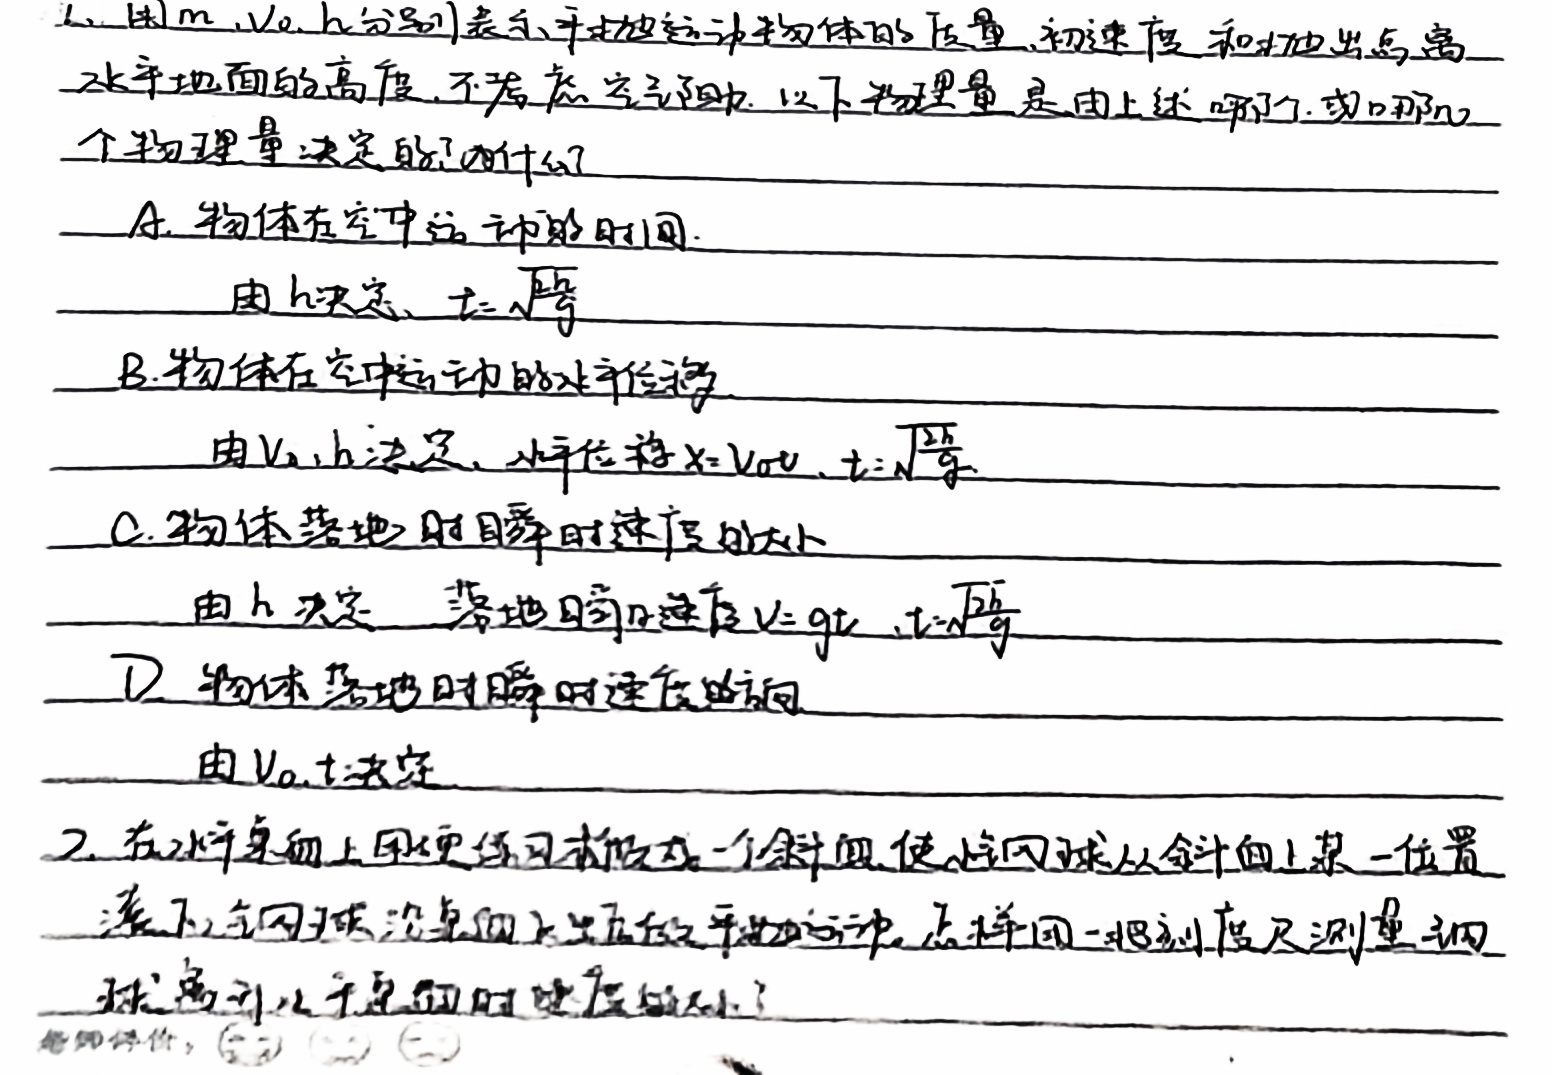 1、用m、V₀、h分别表示平抛运动物体的质量、初速度和抛出点离
水平地面的高度,不考虑空气阻力,以下物理量是由上述哪个.或哪几
个物理量决定的?为什么?
A. 物体在空中运动的时间.
由h决定、 t=√(2h/g)
B.物体在空中运动的水平位移
由V₀、h决定、水平位移x=V₀t、t=√(2h/g)
C.物体落地时瞬时速度的大小
由h决定 落地瞬时速度V=gt、t=√(2h/g)
D 物体落地时瞬时速度的方向
由V₀、t决定
2、在水平桌面上用硬练习本做成一个斜面,使小钢球从斜面上某一位置
滚下,钢球沿桌面飞出后做平抛运动。怎样用一把刻度尺测量钢
球离开水平桌面时速度的大小?
老师评价: